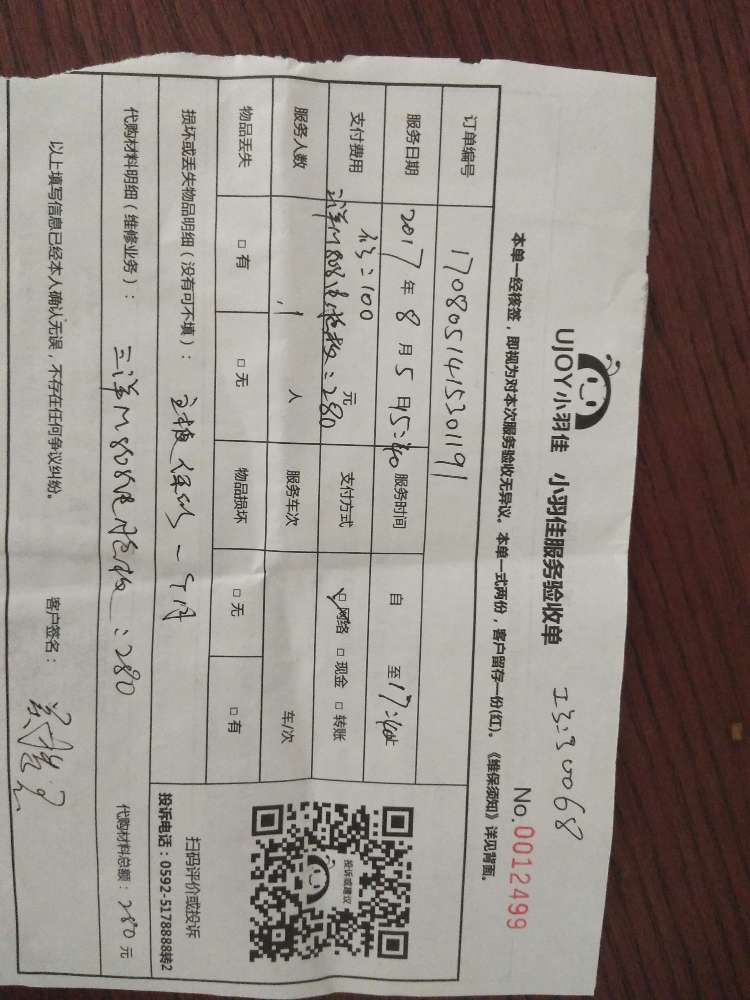 UJOY小羽佳 小羽佳服务验收单
工号:30068
No.0012499
本单一经核签，即视为对本次服务验收无异议。本单一式两份，客户留存一份(红)。《维保须知》详见背面。
订单编号 1708051415301191
服务日期 2017 年 8 月 5 日 15:40 服务时间 自 至 17:40止
支付费用 100 元 支付方式 网络 □ 现金 □ 转账
三洋M808电脑板:280
服务人数 1 人 服务车次 车/次
物品丢失 □ 有 □ 无 物品损坏 □ 无 □ 有
损坏或丢失物品明细（没有可不填）： 主板保修一个月
投诉或建议
扫码评价或投诉
投诉电话：0592-5178888转2
代购材料明细（维修业务）： 三洋M808电脑板:280 代购材料总额：280 元
以上填写信息已经本人确认无误，不存在任何争议纠纷。 客户签名：